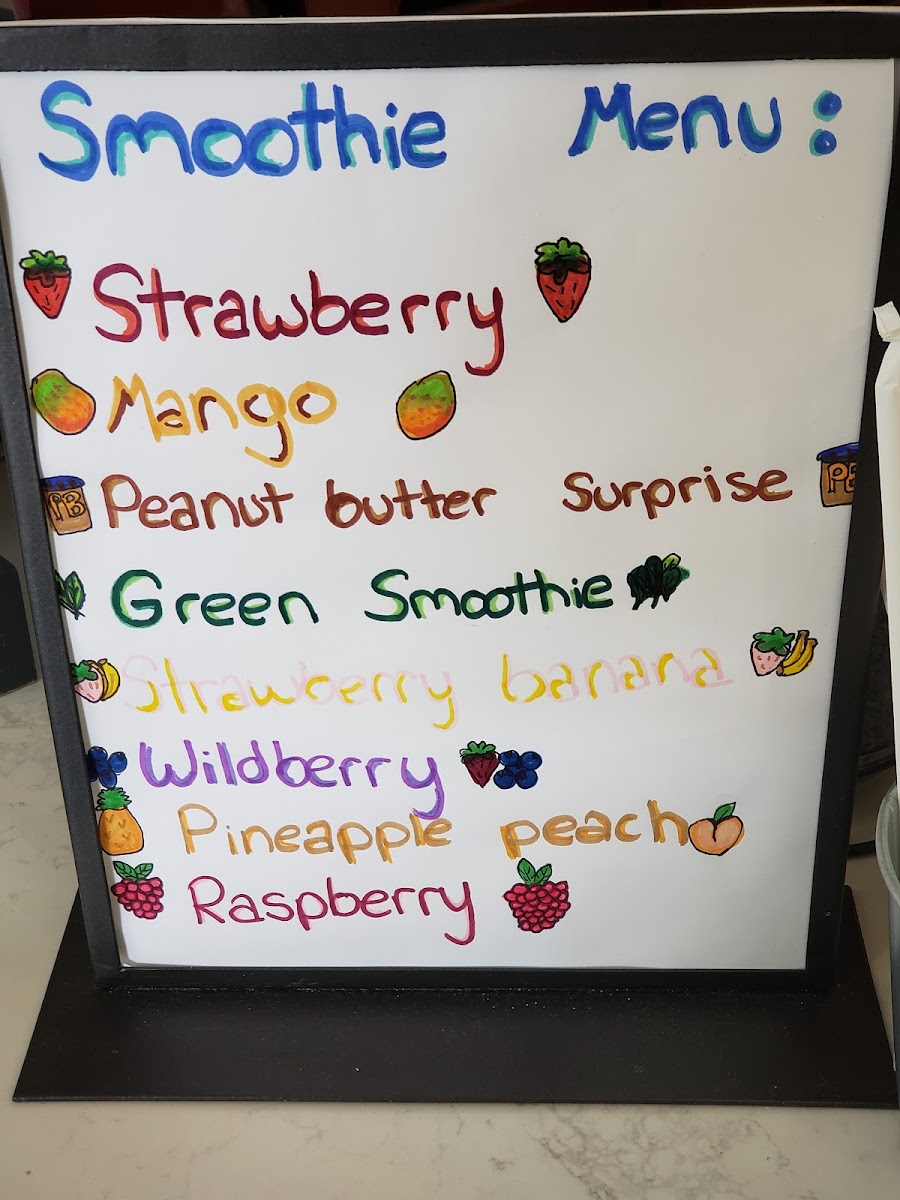 Smoothie Menu:
Strawberry
Mango
PB Peanut butter Surprise PB
Green Smoothie
Strawberry banana
Wildberry
Pineapple peach
Raspberry